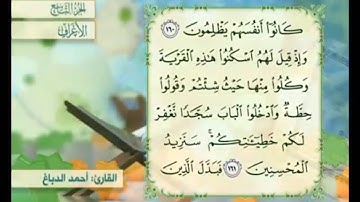 الجزء التاسع
الأعراف
كَانُوٓاْ أَنفُسَهُمْ يَظْلِمُونَ ١٦٠
وَإِذْ قِيلَ لَهُمُ ٱسْكُنُواْ هَٰذِهِ ٱلْقَرْيَةَ
وَكُلُواْ مِنْهَا حَيْثُ شِئْتُمْ وَقُولُواْ
حِطَّةٌ وَٱدْخُلُواْ ٱلْبَابَ سُجَّدًا نَّغْفِرْ
لَكُمْ خَطِيٓـَٰٔتِكُمْ سَنَزِيدُ
ٱلْمُحْسِنِينَ ١٦١ فَبَدَّلَ ٱلَّذِينَ
القارئ: أحمد الدباغ